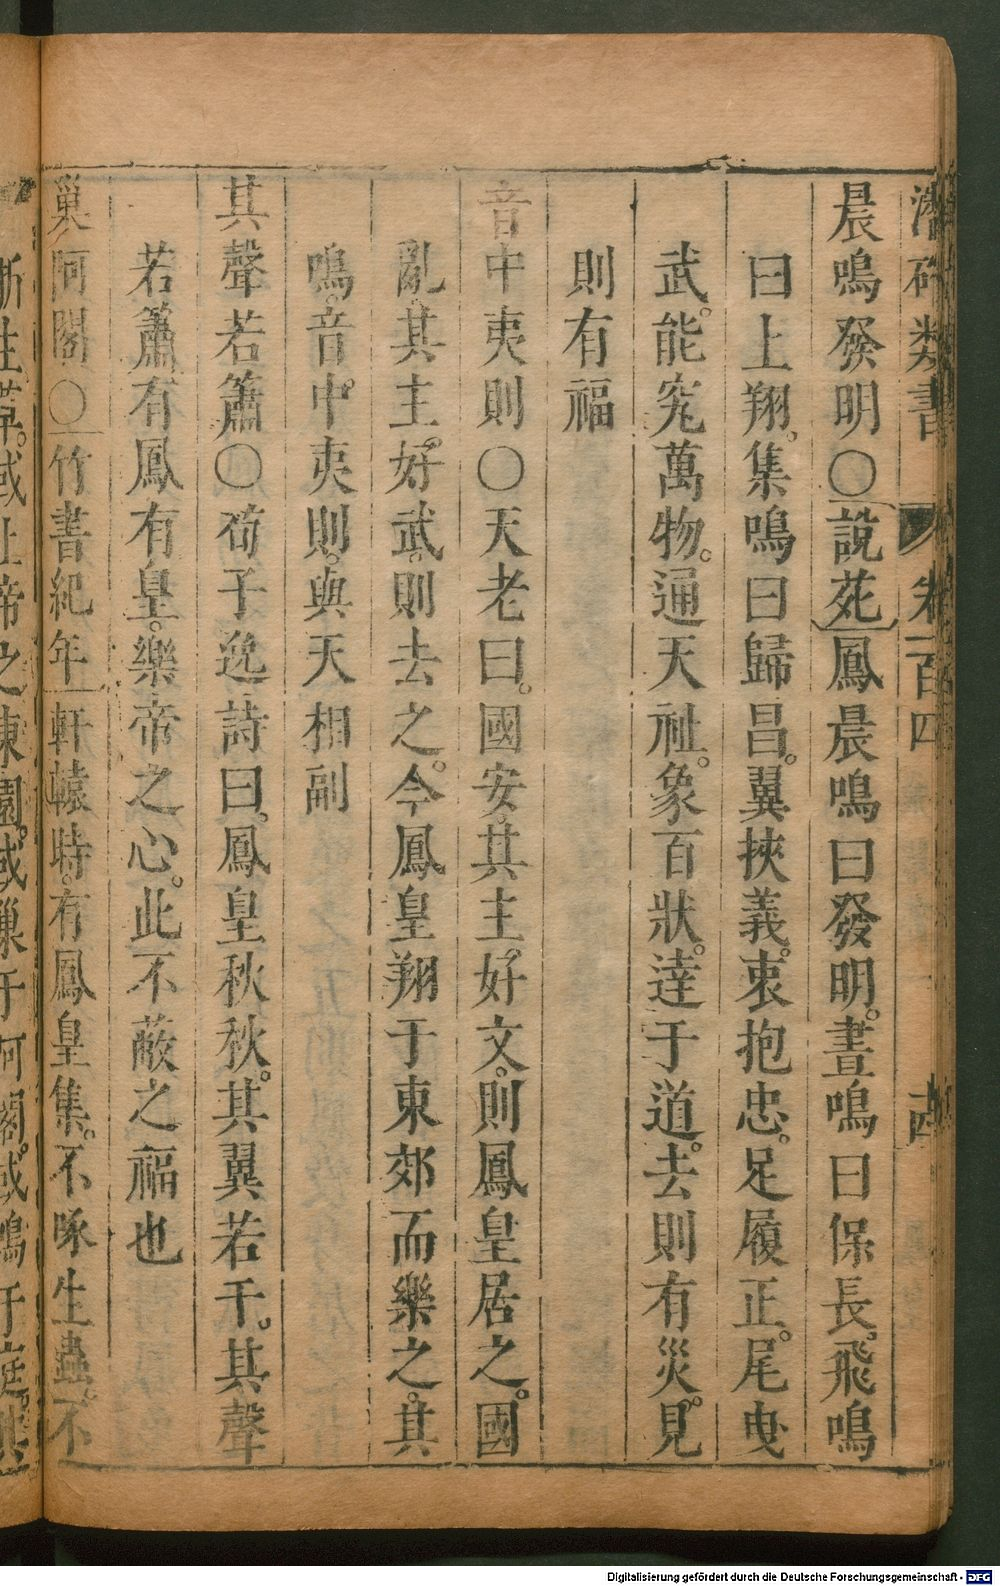 類書 卷一百四
晨鳴發明〇說苑鳳晨鳴曰發明。晝鳴曰保長。飛鳴
曰上翔。集鳴曰歸昌。翼挾義。衷抱忠。足履正。尾曳
武。能究萬物。通天祉。象百狀。達于道。去則有災。見
則有福
音中夷則〇天老曰。國安。其主。好文。則鳳皇居之。國
亂。其主。好武。則去之。今鳳皇翔于東郊而樂之。其
鳴。音中。夷則。與天相副
其聲若簫〇荀子逸詩曰。鳳皇秋秋。其翼若干。其聲
若簫有鳳有皇。樂帝之心。此不蔽之福也
巢阿閣〇竹書紀年軒轅時。有鳳皇集。不啄生蟲。不
上帝之東園。或巢于阿閣。或鳴于庭。其
Digitalisierung gefördert durch die Deutsche Forschungsgemeinschaft - DFG